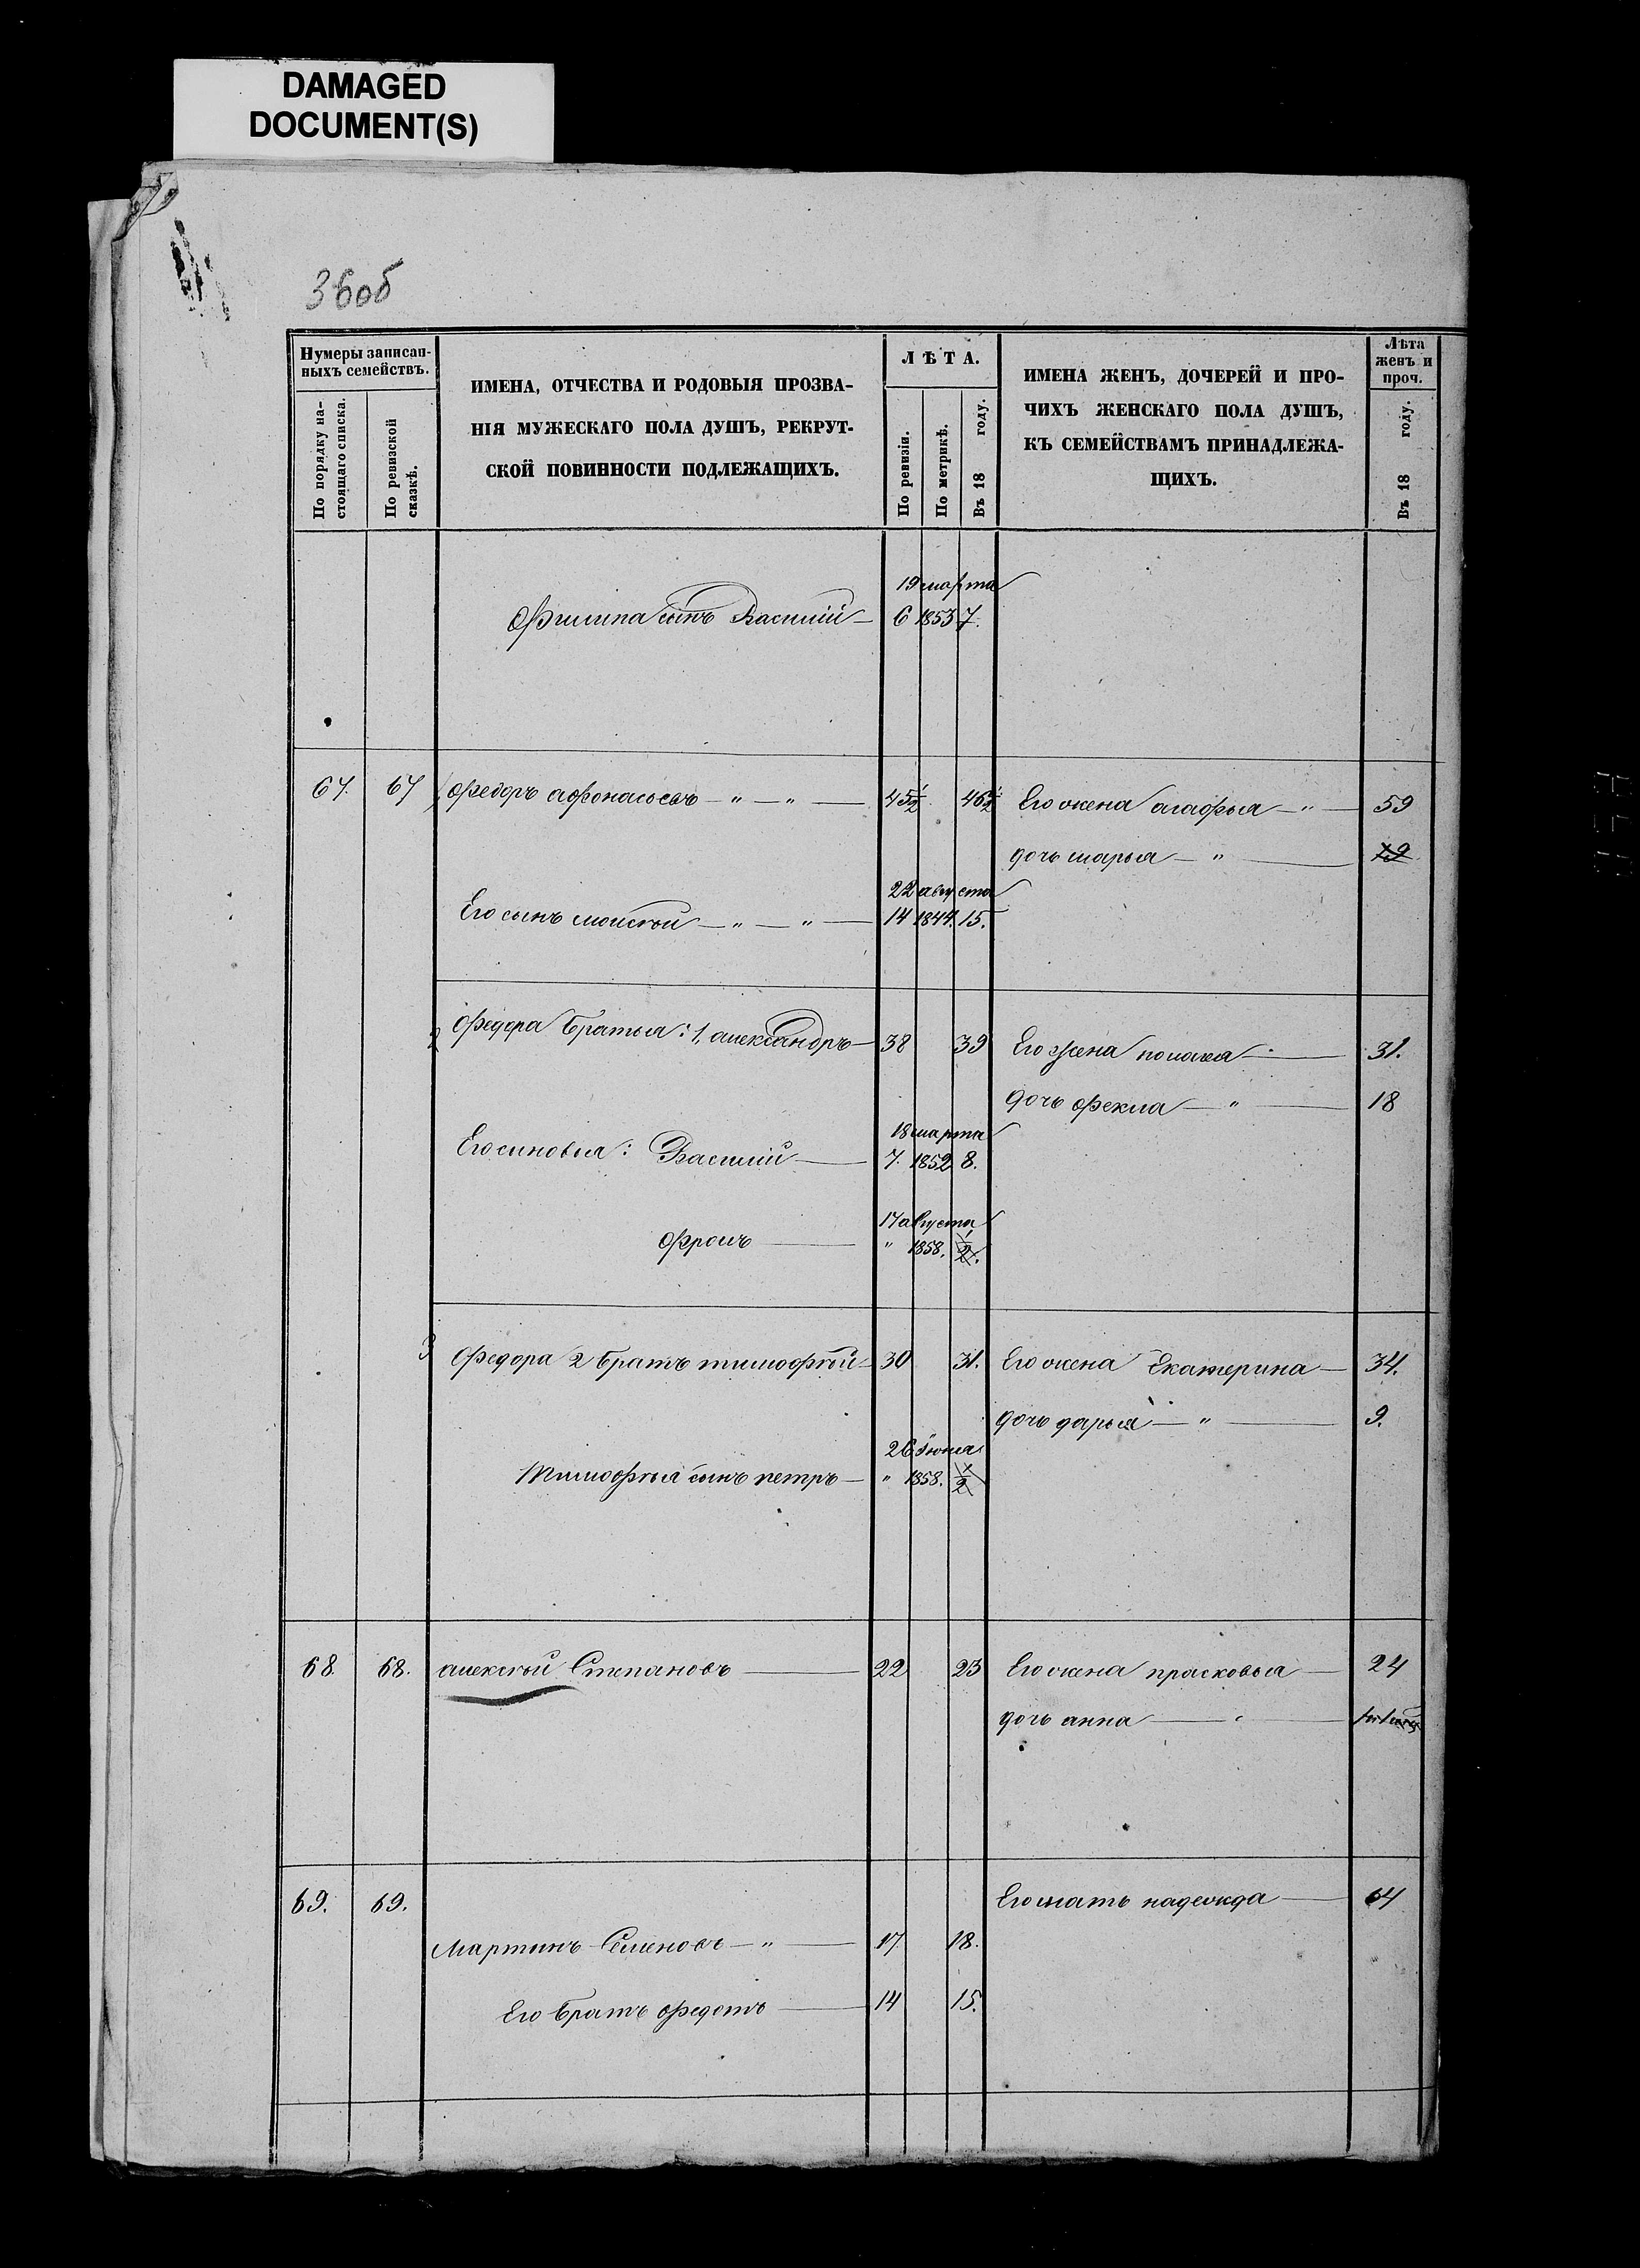 DAMAGED
DOCUMENT(S)
36об
Нумеры записан-
ныхъ семействъ.
По порядку на-
стоящаго списка.
По ревизской
сказкѣ.
ИМЕНА, ОТЧЕСТВА И РОДОВЫЯ ПРОЗВА-
НІЯ МУЖЕСКАГО ПОЛА ДУШЪ, РЕКРУТ-
СКОЙ ПОВИННОСТИ ПОДЛЕЖАЩИХЪ.
ЛѢТА.
По ревизіи.
По метрикѣ.
Въ 18 году.
ИМЕНА ЖЕНЪ, ДОЧЕРЕЙ И ПРО-
ЧИХЪ ЖЕНСКАГО ПОЛА ДУШЪ,
КЪ СЕМЕЙСТВАМЪ ПРИНАДЛЕЖА-
ЩИХЪ.
Лѣта
женъ и
проч.
Въ 18 году.
19 марта
Филипа сынъ Василій — 6 1853 7.
67. 67 Федоръ афонасьевъ — " — " — 45½ 46½ Его жена агафья — " — 59
дочь марья — " — 19
22 августа
Его сынъ моисѣй — " — " — 14 1844. 15.
2 Федора братья: 1, александръ — 38 39 Его жена полагея — 31.
дочь фекла — " — 18
18 марта
Его синовья: Василій — 7. 1852 8.
17 августа
фролъ — " 1858. ½.
3 Федора 2 братъ тимофѣй — 30 31. Его жена Екатерина — 34.
дочь дарья — " — 9.
26 Іюня
Тимофѣя сынъ петръ — " 1858. ½
68. 68. алексѣй Степановъ — 22 23 Его жена прасковья — 24
дочь анна —
69. 69. Его мать надежда — 64
Мартинъ Семеновъ — " — 17. 18.
Его братъ федотъ — 14 15.